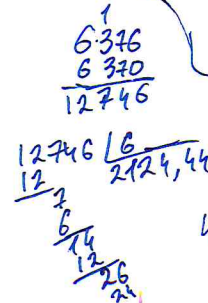 1
6376
6 370
12746
12746 6
12 2124,44
7
6
14
12
26
24